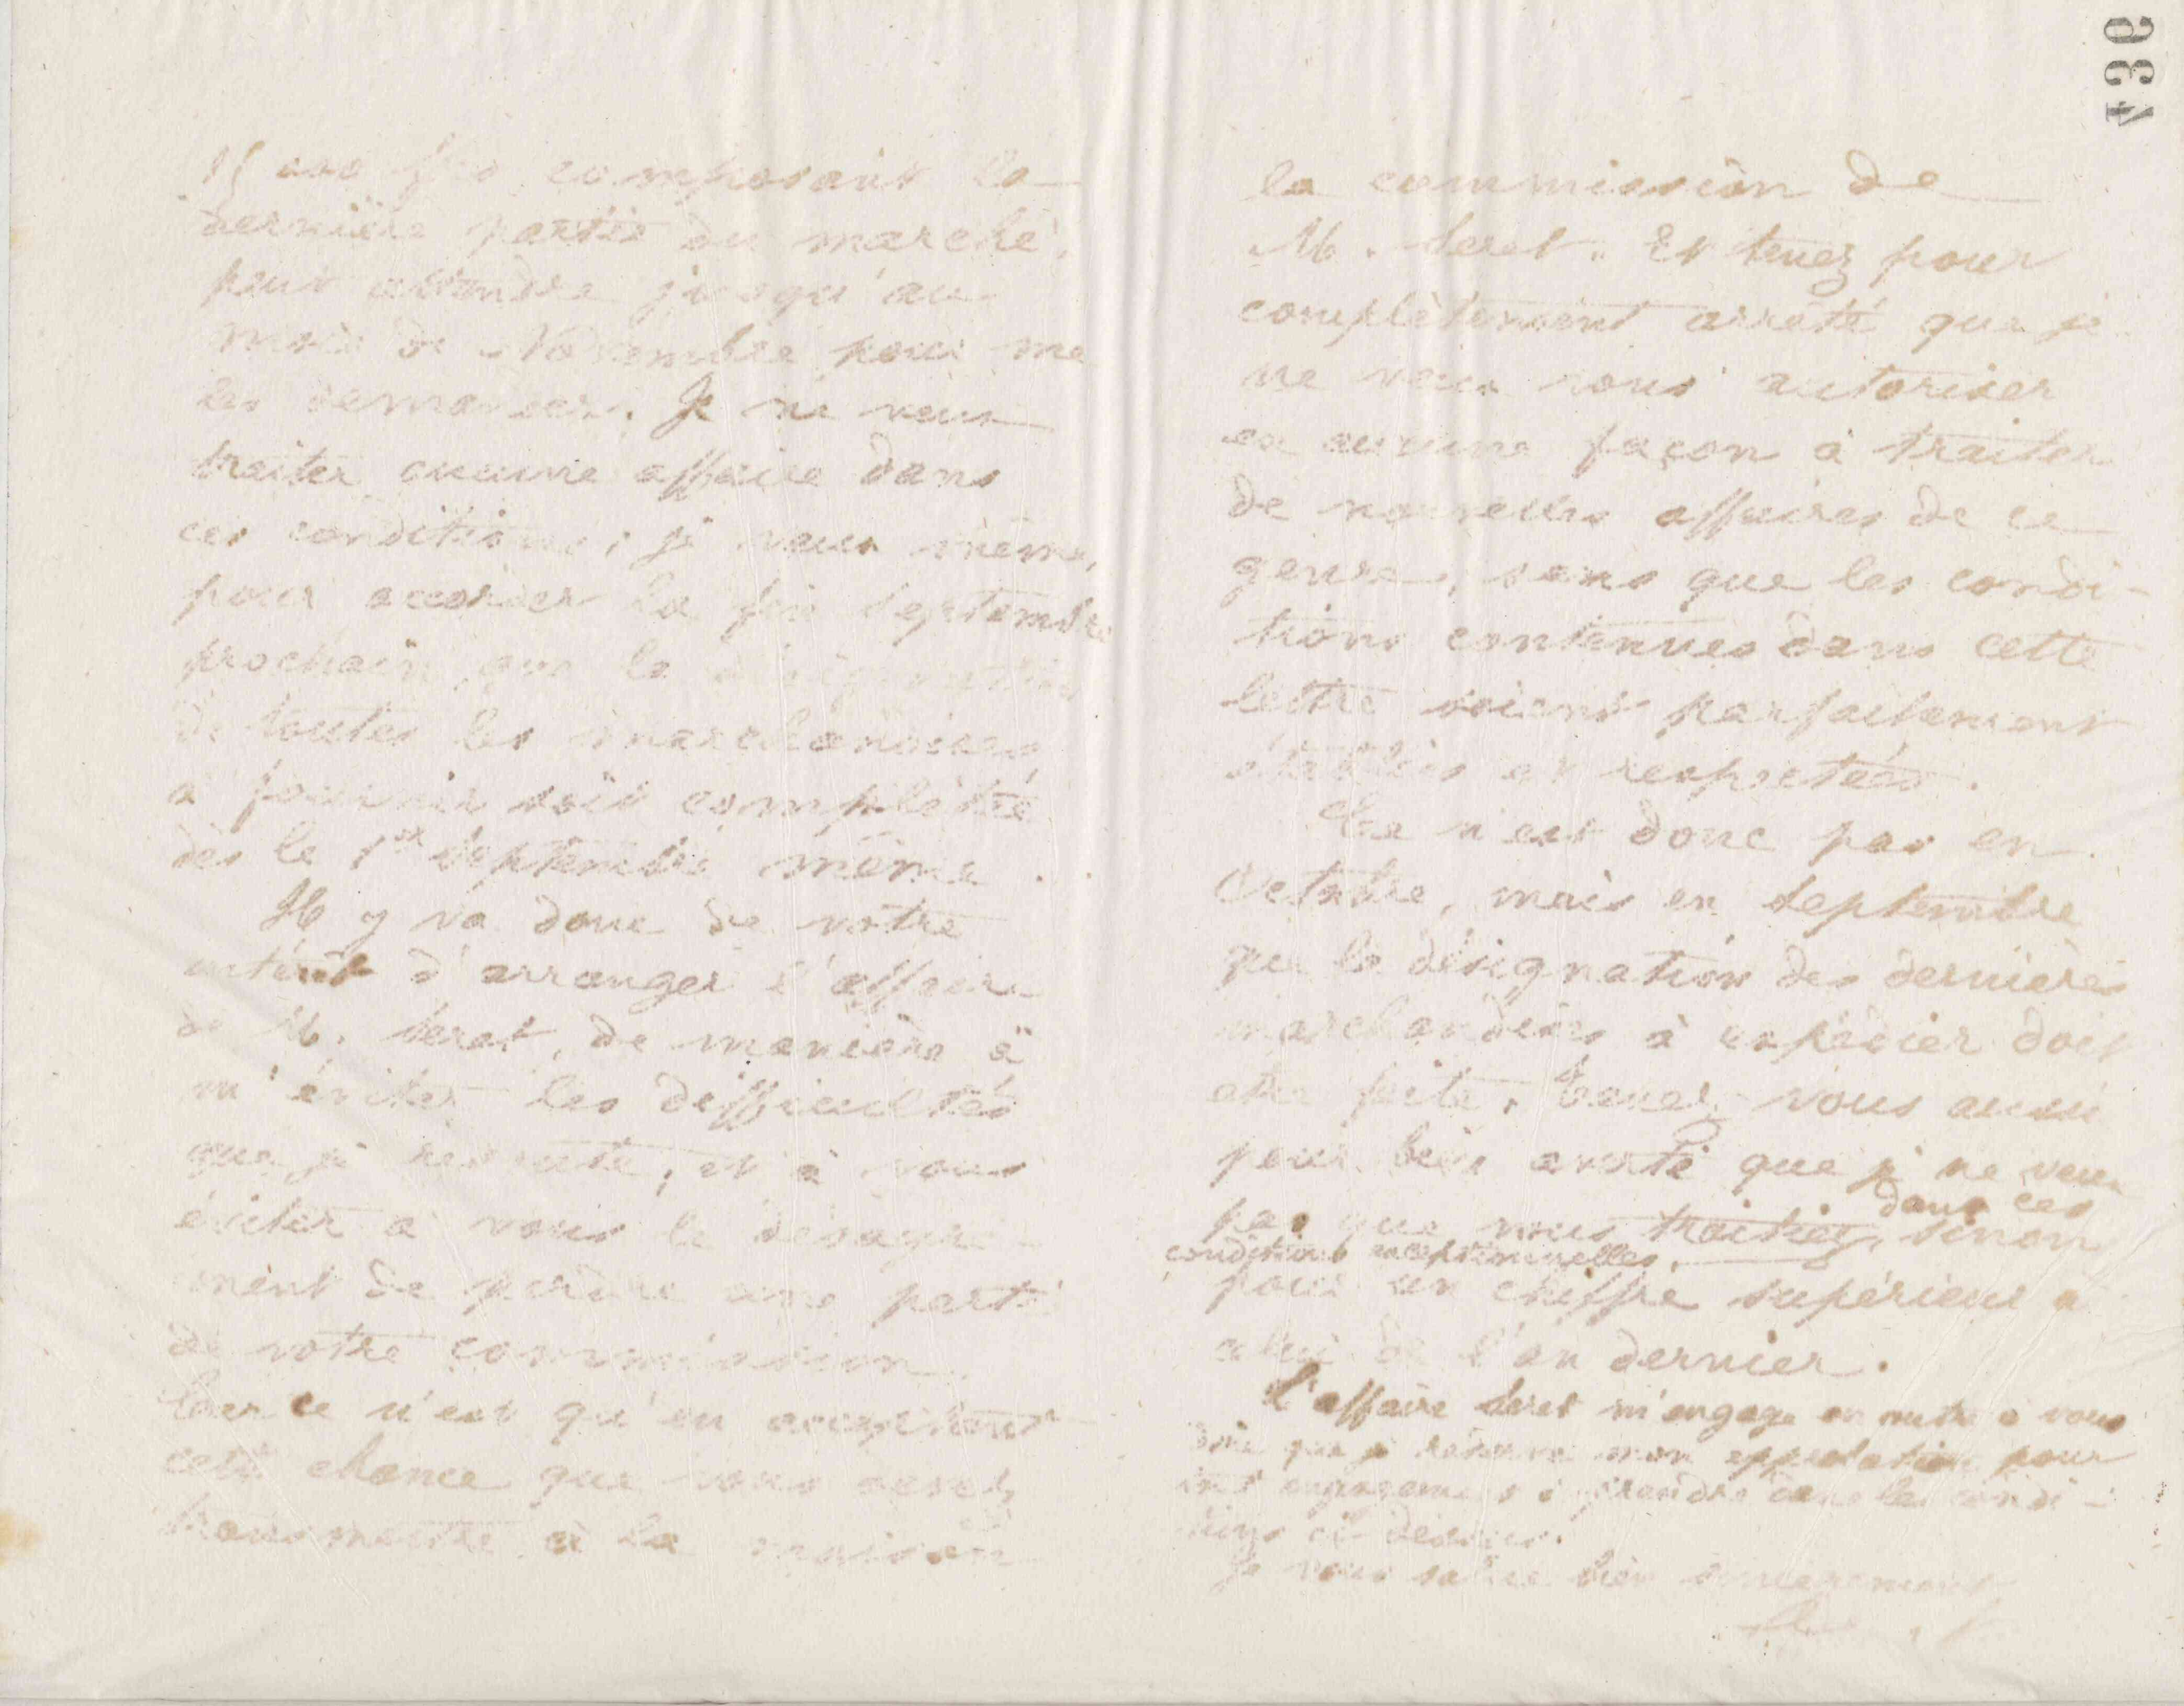 composant la
dernière partie du marché,
peut attendre jusqu'au
mois de Novembre pour me
les demander. Je ne veux
traiter aucune affaire dans
ces conditions; je veux même,
pour accorder la fin septembre
prochain, que la désignation
de toutes les marchandises
à fournir soit complétée
dès le 1er septembre même.
Il y va donc de votre
intérêt d'arranger l'affaire
de M. Seret, de manière à
m'éviter les difficultés
que je redoute, et à vous
éviter à vous le désagré-
ment de perdre une partie
de votre commission.
Car ce n'est qu'en acceptant
cette chance que vous
transmettre à la maison
436
la commission de
M. Seret. Et tenez pour
complètement arrêté que je
ne veux vous autoriser
en aucune façon à traiter
de nouvelles affaires de ce
genre, sans que les condi-
tions contenues dans cette
lettre soient parfaitement
établies et respectées.
Ce n'est donc pas en
Octobre, mais en septembre
que la désignation des dernières
marchandises à expédier doit
être faite. Tenez-vous aussi
pour bien averti que je ne veux
pas que vous traitiez, dans ces
conditions exceptionnelles, sinon
pour un chiffre supérieur à
celui de l'an dernier.
L'affaire Seret m'engage en outre à vous
dire que je réserve mon approbation pour
engagements à prendre dans les condi-
tions ci-dessus.
Je vous salue bien sincèrement